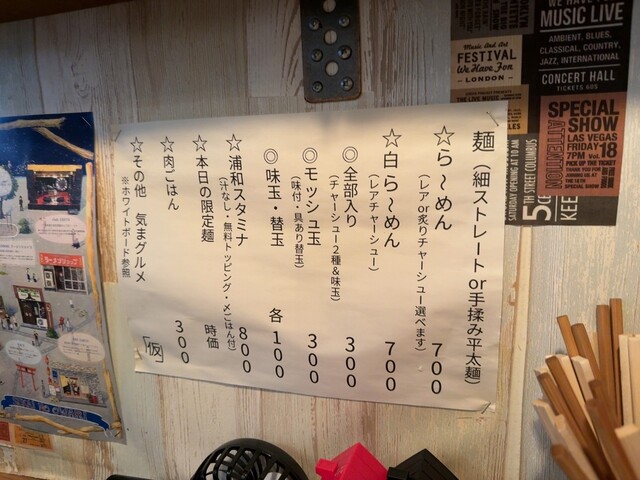 麺（細ストレートor手揉み平太麺）
☆ら～めん 700
（レアor炙りチャーシュー選べます）
☆白ら～めん 700
（レアチャーシュー）
◎全部入り 300
（チャーシュー2種&味玉）
◎モッシュ玉 300
（味付・具あり替玉）
◎味玉・替玉 各100
☆浦和スタミナ 800
（汁なし・無料トッピング・〆ごはん付）
☆本日の限定麺 時価
☆肉ごはん 300
☆その他 気まグルメ
※ホワイトボード参照
「仮」
MUSIC LIVE
AMBIENT, BLUES,
CLASSICAL, COUNTRY,
JAZZ, INTERNATIONAL
CONCERT HALL
TICKETS 60$
Music And Art
FESTIVAL
We Have Fon
LONDON
THE LIVE MUSIC
SPECIAL
SHOW
ATTENTION
LAS VEGAS
FRIDAY
7PM Vol.18
PICK UP THE TICKET
SPECIAL SHOW
SATURDAY OPENING AT 10 AM
5TH STREET COLUMBUS
ラーメンショップ